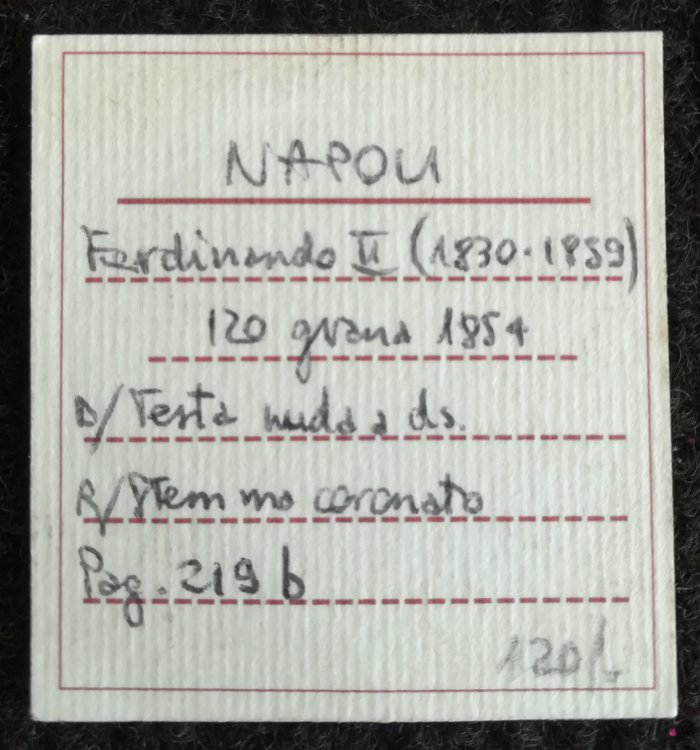 NAPOLI
Ferdinando II (1830-1859)
120 grana 1854
D/ Testa nuda a ds.
R/ Stemma coronato
Pag. 219 b
120/-